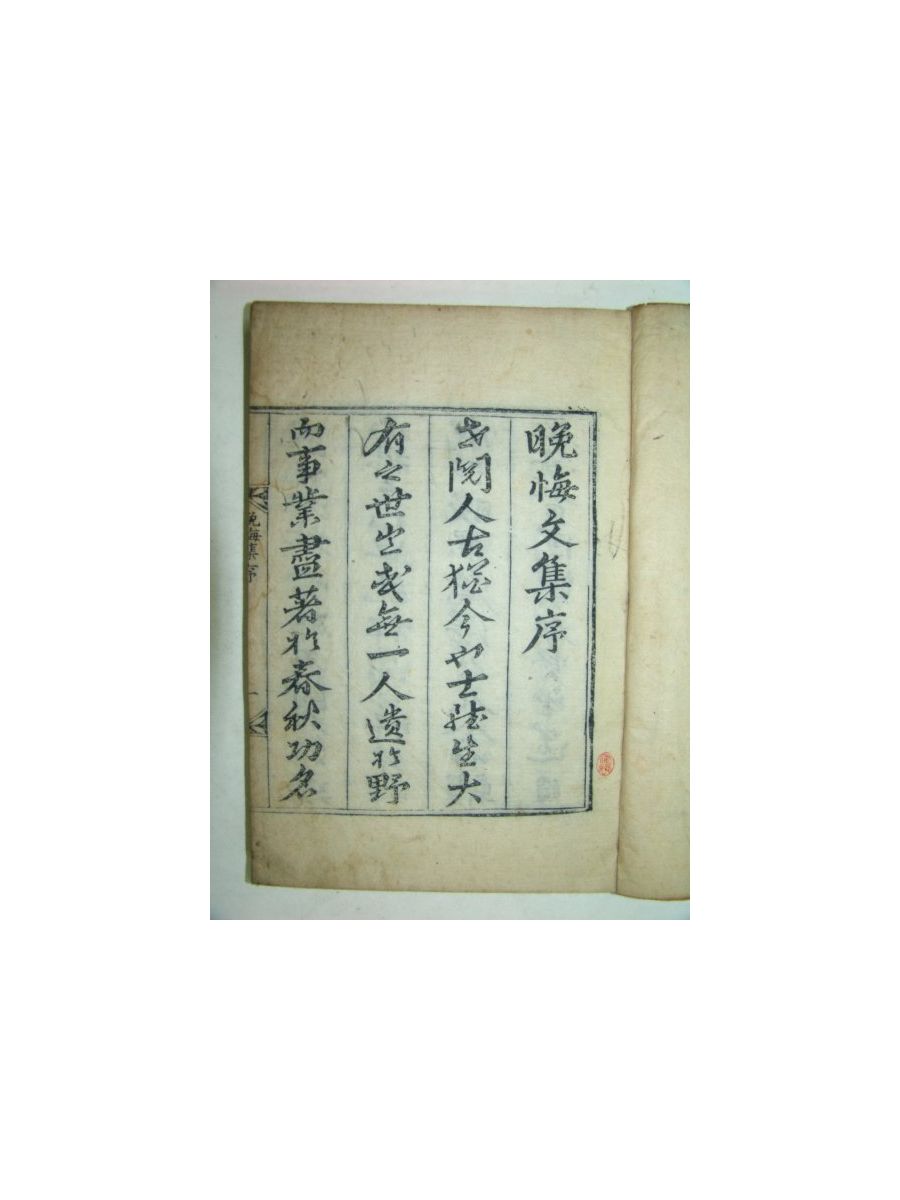 晚悔文集序
世閱人古猶今也士能生大
有之世豈或無一人遺於野
而事業盡著於春秋功名
晚悔集序
一